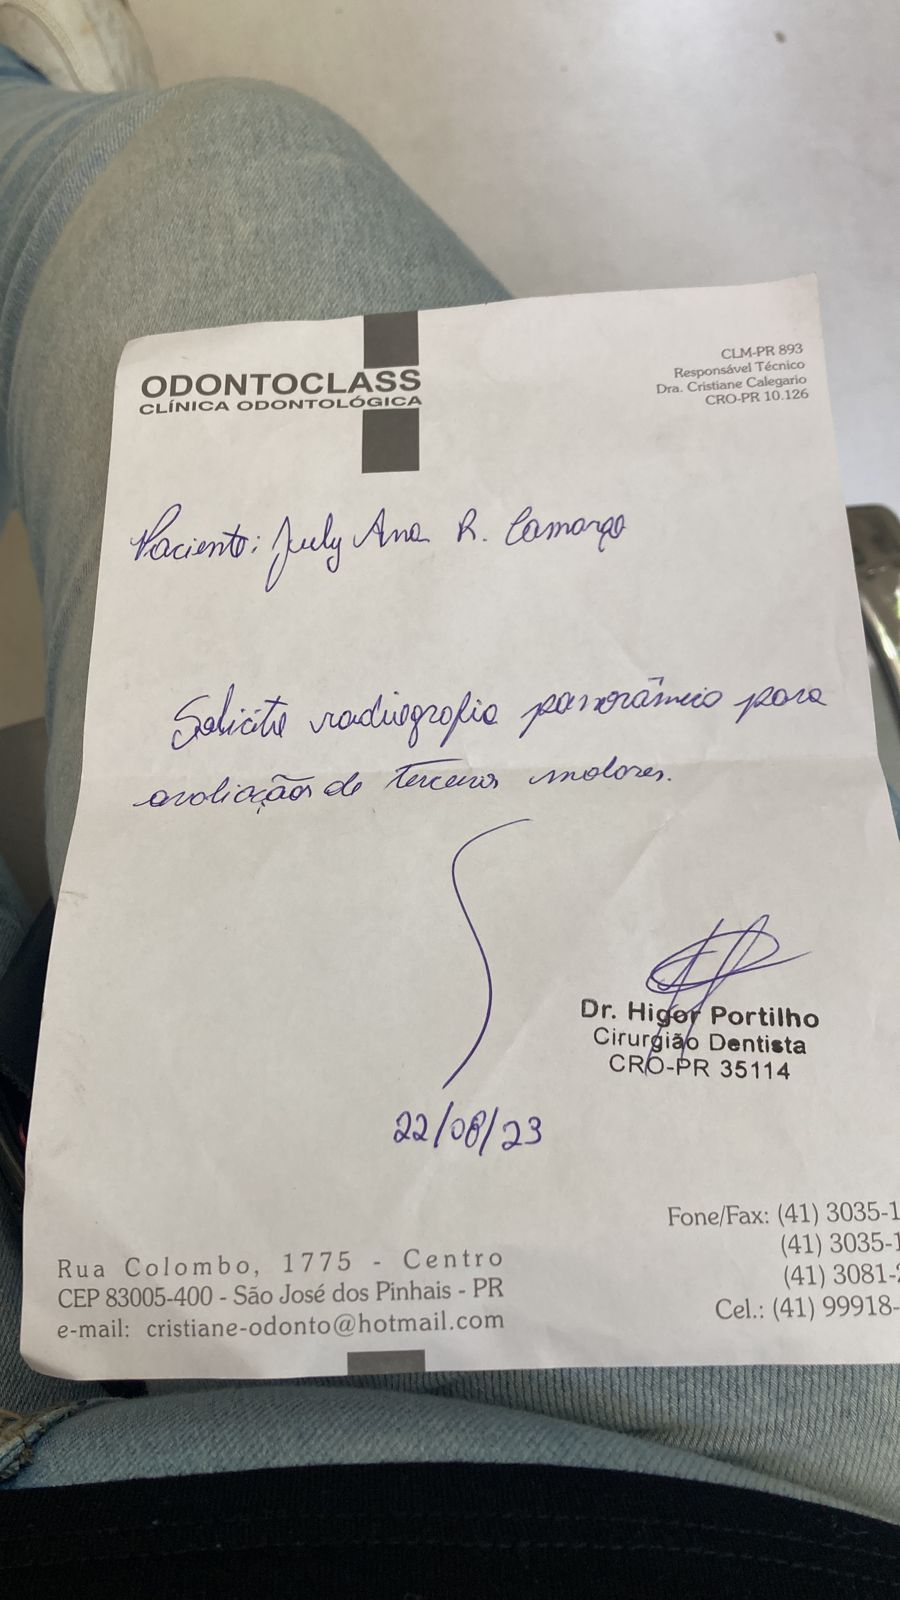 ODONTOCLASS
CLÍNICA ODONTOLÓGICA
CLM-PR 893
Responsável Técnico
Dra. Cristiane Calegario
CRO-PR 10.126
Paciente: July Ana R. Camargo
Solicito radiografia panorâmica para
avaliação de terceiros molares.
Dr. Higor Portilho
Cirurgião Dentista
CRO-PR 35114
22/08/23
Rua Colombo, 1775 - Centro
CEP 83005-400 - São José dos Pinhais - PR
e-mail: cristiane-odonto@hotmail.com
Fone/Fax: (41) 3035-1
(41) 3035-1
(41) 3081-2
Cel.: (41) 99918-